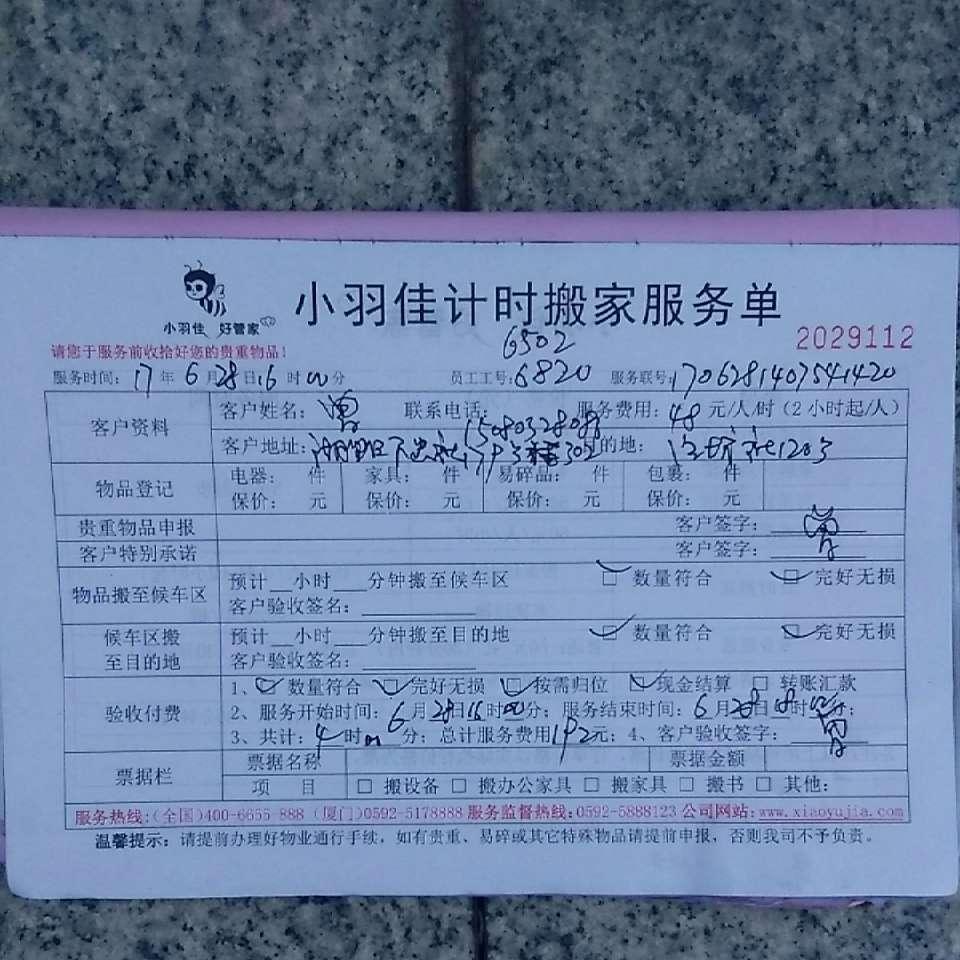 小羽佳 好管家
小羽佳计时搬家服务单
2029112
请您于服务前收拾好您的贵重物品！
6502
服务时间：17年6月28日16时00分 员工工号：6820 服务联号：170628140754 1420
客户资料 客户姓名：曾 联系电话： 服务费用：48元/人/时（2小时起/人）
客户地址： 302 目的地： 社120号
物品登记 电器： 件 家具： 件 易碎品： 件 包裹： 件
保价： 元 保价： 元 保价： 元 保价： 元
贵重物品申报 客户签字：曾
客户特别承诺 客户签字：
物品搬至候车区 预计__小时___分钟搬至候车区 数量符合 完好无损
客户验收签名：
候车区搬至目的地 预计__小时___分钟搬至目的地 数量符合 完好无损
客户验收签名：
验收付费 1、数量符合 完好无损 按需归位 现金结算 转账汇款
2、服务开始时间：6月28日16时00分；服务结束时间：6月28日18时 分；
3、共计：4时00分；总计服务费用192元；4、客户验收签字：曾
票据栏 票据名称 票据金额
项 目 搬设备 搬办公家具 搬家具 搬书 其他：
服务热线：（全国）400-6655-888（厦门）0592-5178888 服务监督热线：0592-5888123 公司网站：www.xiaoyujia.com
温馨提示：请提前办理好物业通行手续，如有贵重、易碎或其它特殊物品请提前申报，否则我司不予负责。